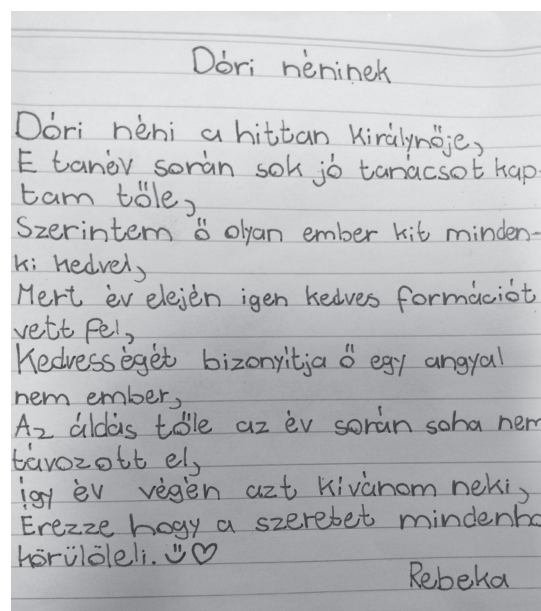 Dóri néninek
Dóri néni a hittan királynője,
E tanév során sok jó tanácsot kap-
tam tőle,
Szerintem ő olyan ember kit minden-
ki kedvel,
Mert év elején igen kedves formációt
vett fel,
Kedvességét bizonyítja ő egy angyal
nem ember,
Az áldás tőle az év során soha nem
távozott el,
így év végén azt kívánom neki,
Érezze hogy a szeretet mindenho
körülöleli. ☺♡
Rebeka